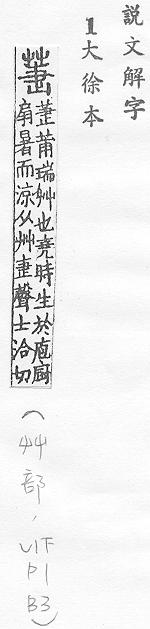 説文解字
1大徐本
萐
萐莆瑞艸也堯時生於庖厨
扇暑而涼从艸疌聲士洽切
(艸部,
V1F
P1
B3)